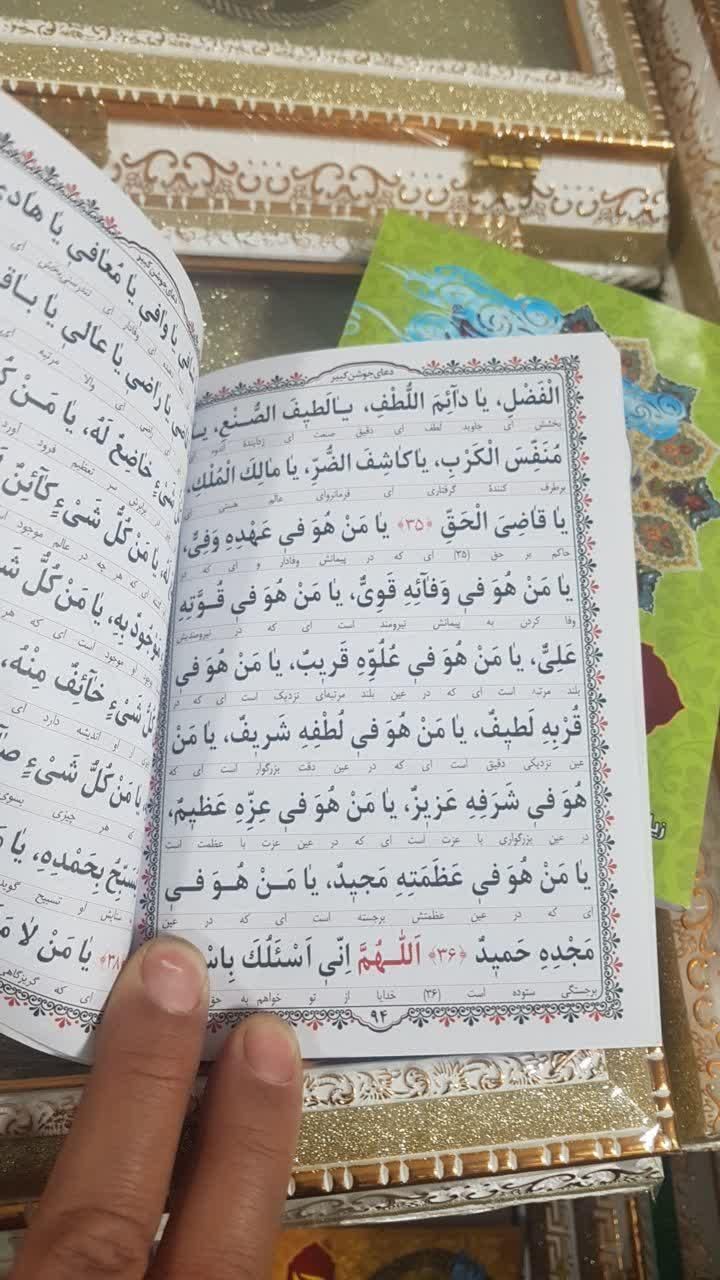 دعای جوشن کبیر
الْفَضْلِ، یا دآئِمَ اللُّطْفِ، یا لَطیفَ الصُّنْعِ، یا
بخشش ای جاوید لطف ای دقیق صنعت ای
مُنَفِّسَ الْکَرْبِ، یا کاشِفَ الضُّرِّ، یا مالِكَ الْمُلْكِ،
برطرف کنندهٔ گرفتاری ای فرمانروای عالم هستی ای
یا قاضِیَ الْحَقِّ ﴿۳۵﴾ یا مَنْ هُوَ فی عَهْدِهِ وَفِیٌّ،
حاکم بر حق (۳۵) ای که در پیمانش وفادار و ای که در
یا مَنْ هُوَ فی وَفآئِهِ قَوِیٌّ، یا مَنْ هُوَ فی قُوَّتِهِ
وفا کردن به پیمانش نیرومند است ای که در نیرومندیش
عَلِیٌّ، یا مَنْ هُوَ فی عُلُوِّهِ قَریبٌ، یا مَنْ هُوَ فی
بلند مرتبه است ای که در عین بلند مرتبه‌ای نزدیک است ای که در
قُرْبِهِ لَطیفٌ، یا مَنْ هُوَ فی لُطْفِهِ شَریفٌ، یا مَنْ
عین نزدیکی دقیق است ای که در عین دقت بزرگوار است ای که
هُوَ فی شَرَفِهِ عَزیزٌ، یا مَنْ هُوَ فی عِزِّهِ عَظیمٌ،
در عین بزرگواری با عزت است ای که در عین عزت با عظمت است
یا مَنْ هُوَ فی عَظَمَتِهِ مَجیدٌ، یا مَنْ هُوَ فی
ای که در عین عظمتش برجسته است ای که در عین
مَجْدِهِ حَمیدٌ ﴿۳۶﴾ اَللّٰهُمَّ اِنّی اَسْئَلُكَ بِاسْ
برجستگی ستوده است (۳۶) خدایا از تو خواهم به حق
۹۴
دعای جوشن کبیر
یا وافی یا مُعافی یا هادی
یا راضی یا عالی یا باق
شَیْءٍ خاضِعٌ لَهُ، یا مَنْ کُ
یا مَنْ کُلُّ شَیْءٍ کآئِنٌ
مَوْجُودٌ بِهِ، یا مَنْ کُلُّ شَ
کُلُّ شَیْءٍ خآئِفٌ مِنْهُ،
یا مَنْ کُلُّ شَیْءٍ
یُسَبِّحُ بِحَمْدِهِ، یا مَ
﴿۳۸﴾ یا مَنْ لا مَ